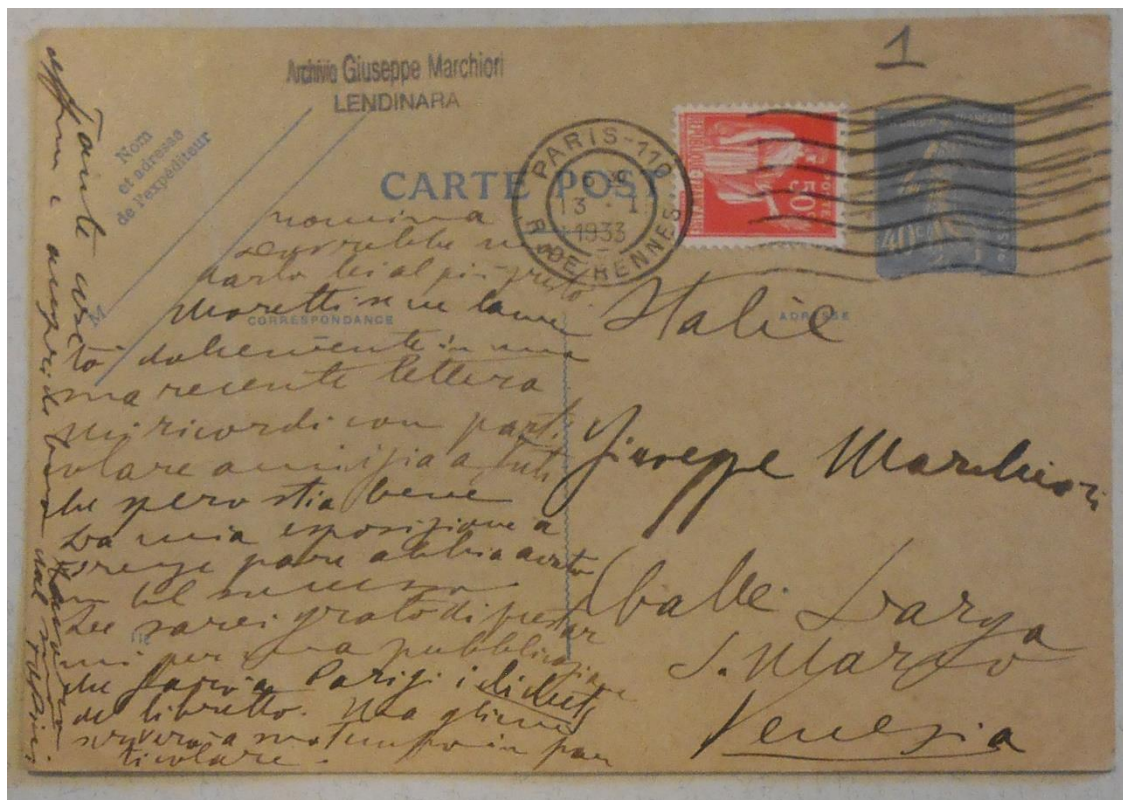 1
Archivio Giuseppe Marchiori
LENDINARA
Nom
et adresse
de l'expéditeur
M
CARTE POST
PARIS-110
13 · I
1933
R. DE RENNES
RÉPUBLIQUE FRANÇAISE
POSTES
50c
40c
POSTES
CORRESPONDANCE
ADRESSE
nomina
dovrebbe
darlo lei al più presto.
Moretti se ne lame
ta dolcemente in una
ma recente lettera
mi ricordi con parti
colare amicizia a tuti
che spero stia bene
La mia esposizione a
Firenze pare abbia avuto
un bel successo
Le sarei grato di prestar
mi per una pubblicazione
che farò a Parigi i clichets
del libretto. Ma gliene
scriverò a suo tempo in par
ticolare.
Tante cose
e auguri di
Severini
Italie
Giuseppe Marchiori
Calle Larga
S. Marco
Venezia